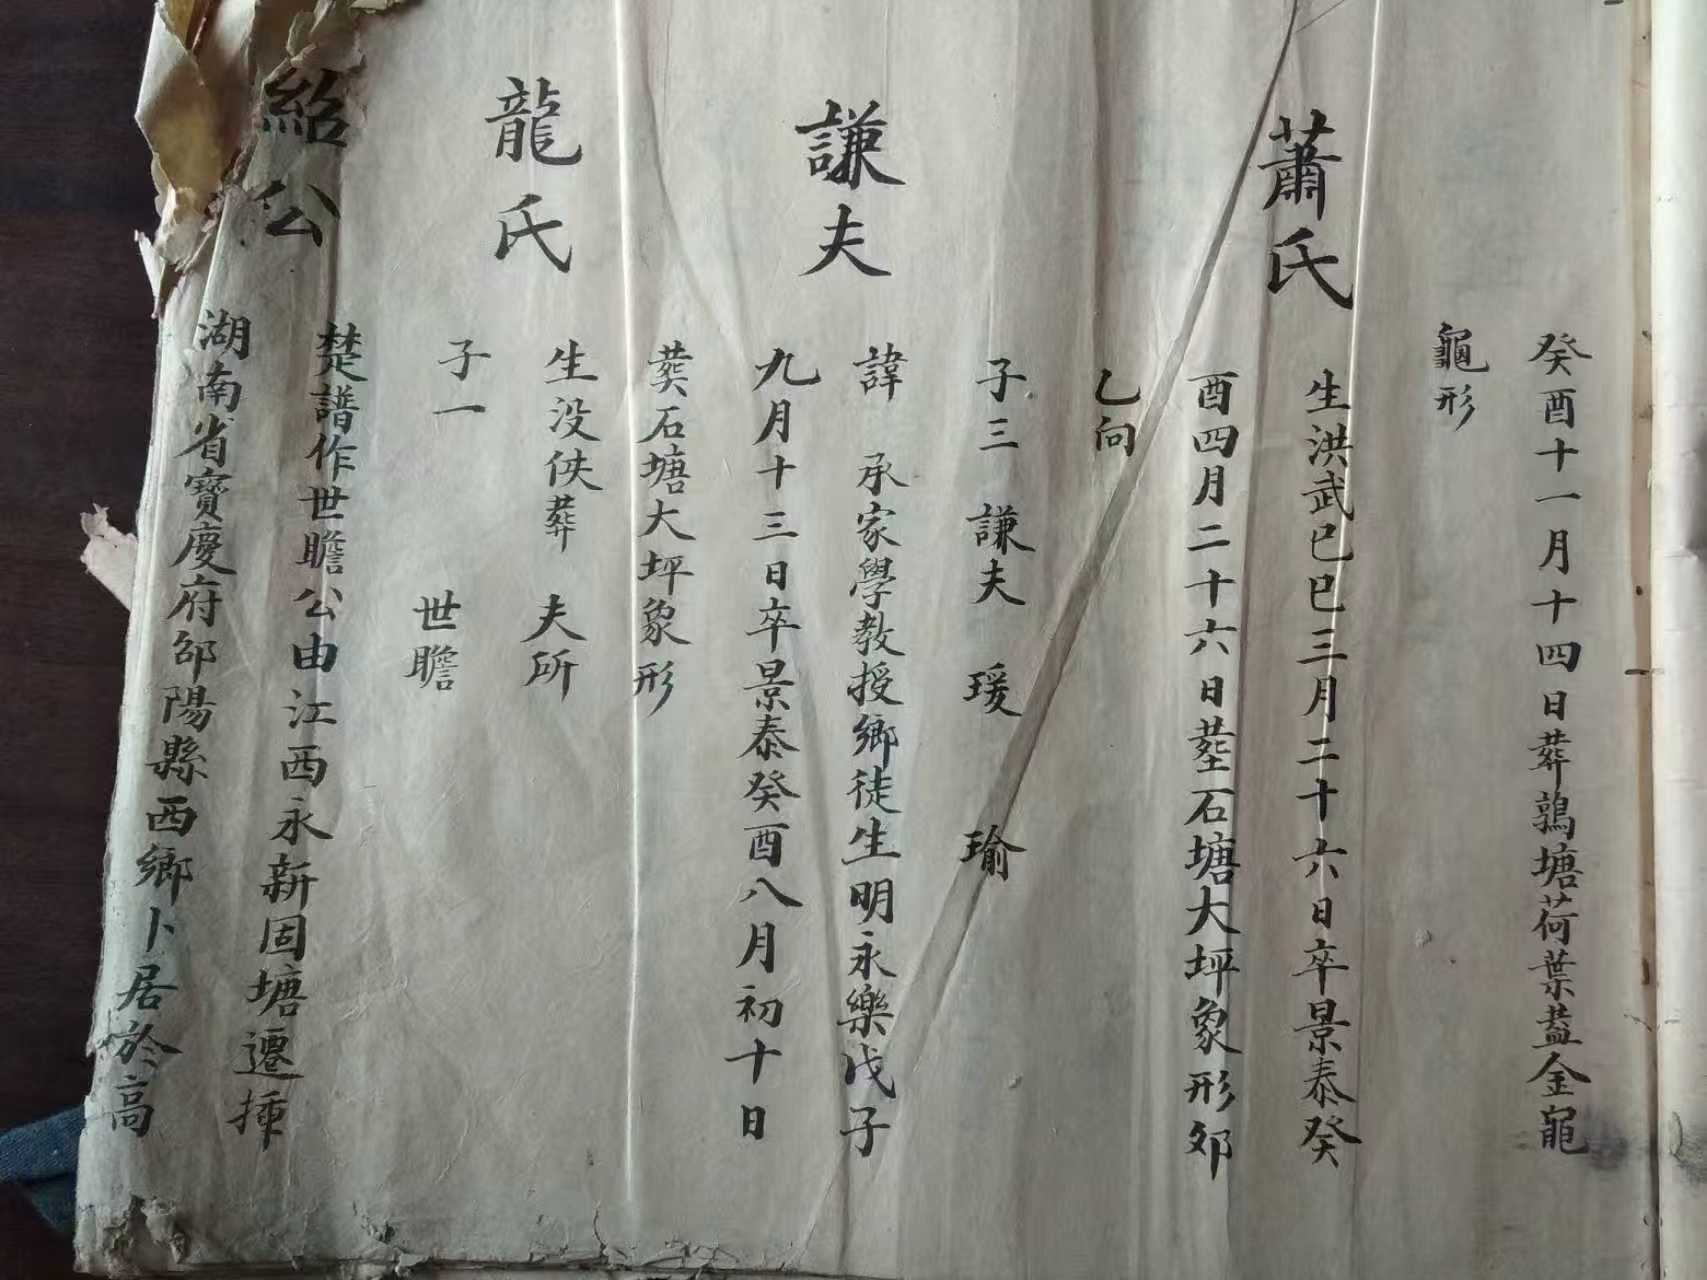 癸酉十一月十四日葬鶉塘荷葉葢金龜
龜形
蕭氏
生洪武已巳三月二十六日卒景泰癸
酉四月二十六日塟石塘大坪象形夘
乙向
子三 謙夫 瑗 瑜
謙夫
諱 承家學教授鄉徒生明永樂戊子
九月十三日卒景泰癸酉八月初十日
葬石塘大坪象形
龍氏
生没佚葬 夫所
子一 世瞻
紹公
楚譜作世瞻公由江西永新固塘遷
湖南省寶慶府邵陽縣西鄉卜居於高